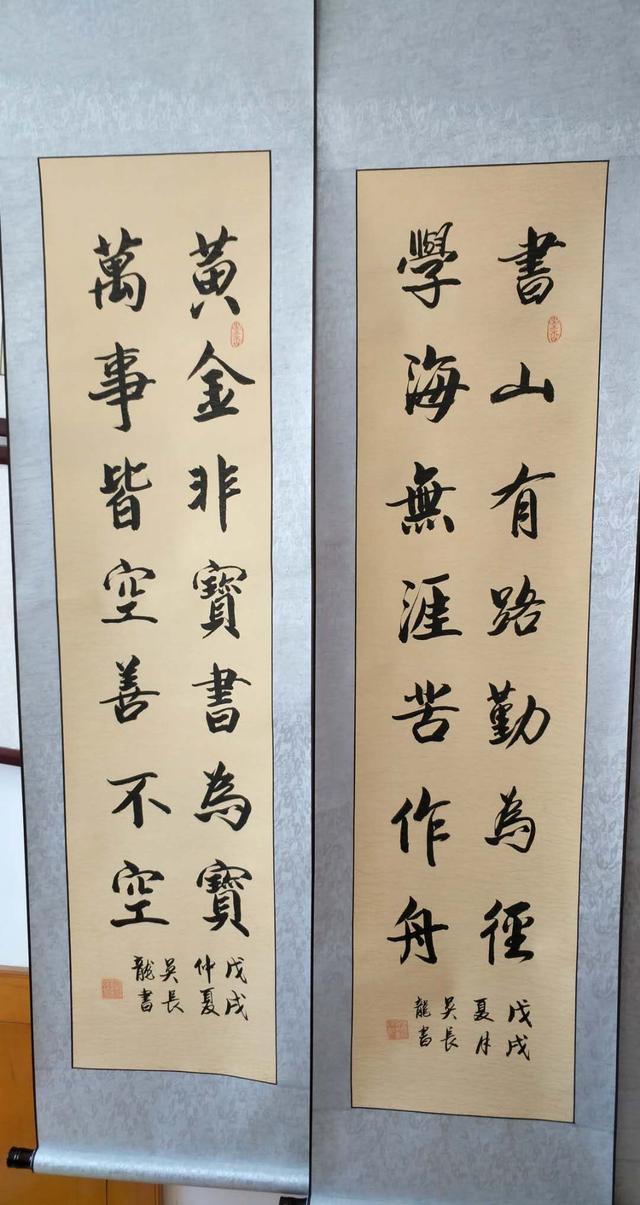 書山有路勤為徑
學海無涯苦作舟
戊戌
夏月
吳長
龍書
黃金非寶書為寶
萬事皆空善不空
戊戌
仲夏
吳長
龍書